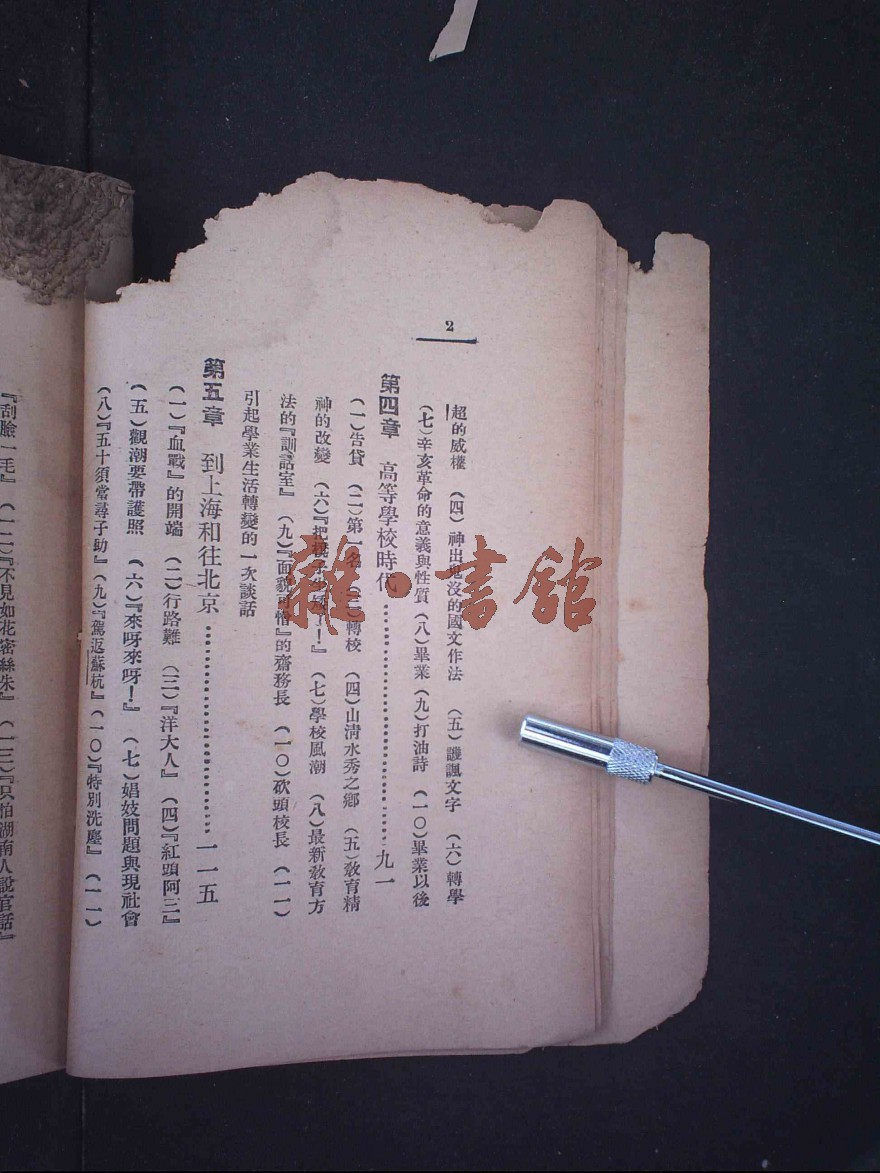 2
超的威權 (四) 神出鬼沒的國文作法 (五) 譏諷文字 (六) 轉學
(七)辛亥革命的意義與性質 (八)畢業 (九)打油詩 (一〇)畢業以後
第四章 高等學校時代………………九一
(一)告貸 (二)第一名 (三)轉校 (四)山清水秀之鄉 (五)敎育精
神的改變 (六)『把 了!』 (七)學校風潮 (八)最新敎育方
法的『訓話室』 (九)『面貌可憎』的齋務長 (一〇)砍頭校長 (一一)
引起學業生活轉變的一次談話
第五章 到上海和往北京………………一一五
(一)『血戰』的開端 (二)行路難 (三)『洋大人』 (四)『紅頭阿三』
(五)觀潮要帶護照 (六)『來呀來呀!』 (七)娼妓問題與現社會
(八)『五十須當尋子助』 (九)『駕返蘇杭』 (一〇)『特別洗塵』 (一一)
『刮臉一毛』 (一二)『不見如花密絲朱』 (一三)『只怕湖南人說官話』
雜·書館